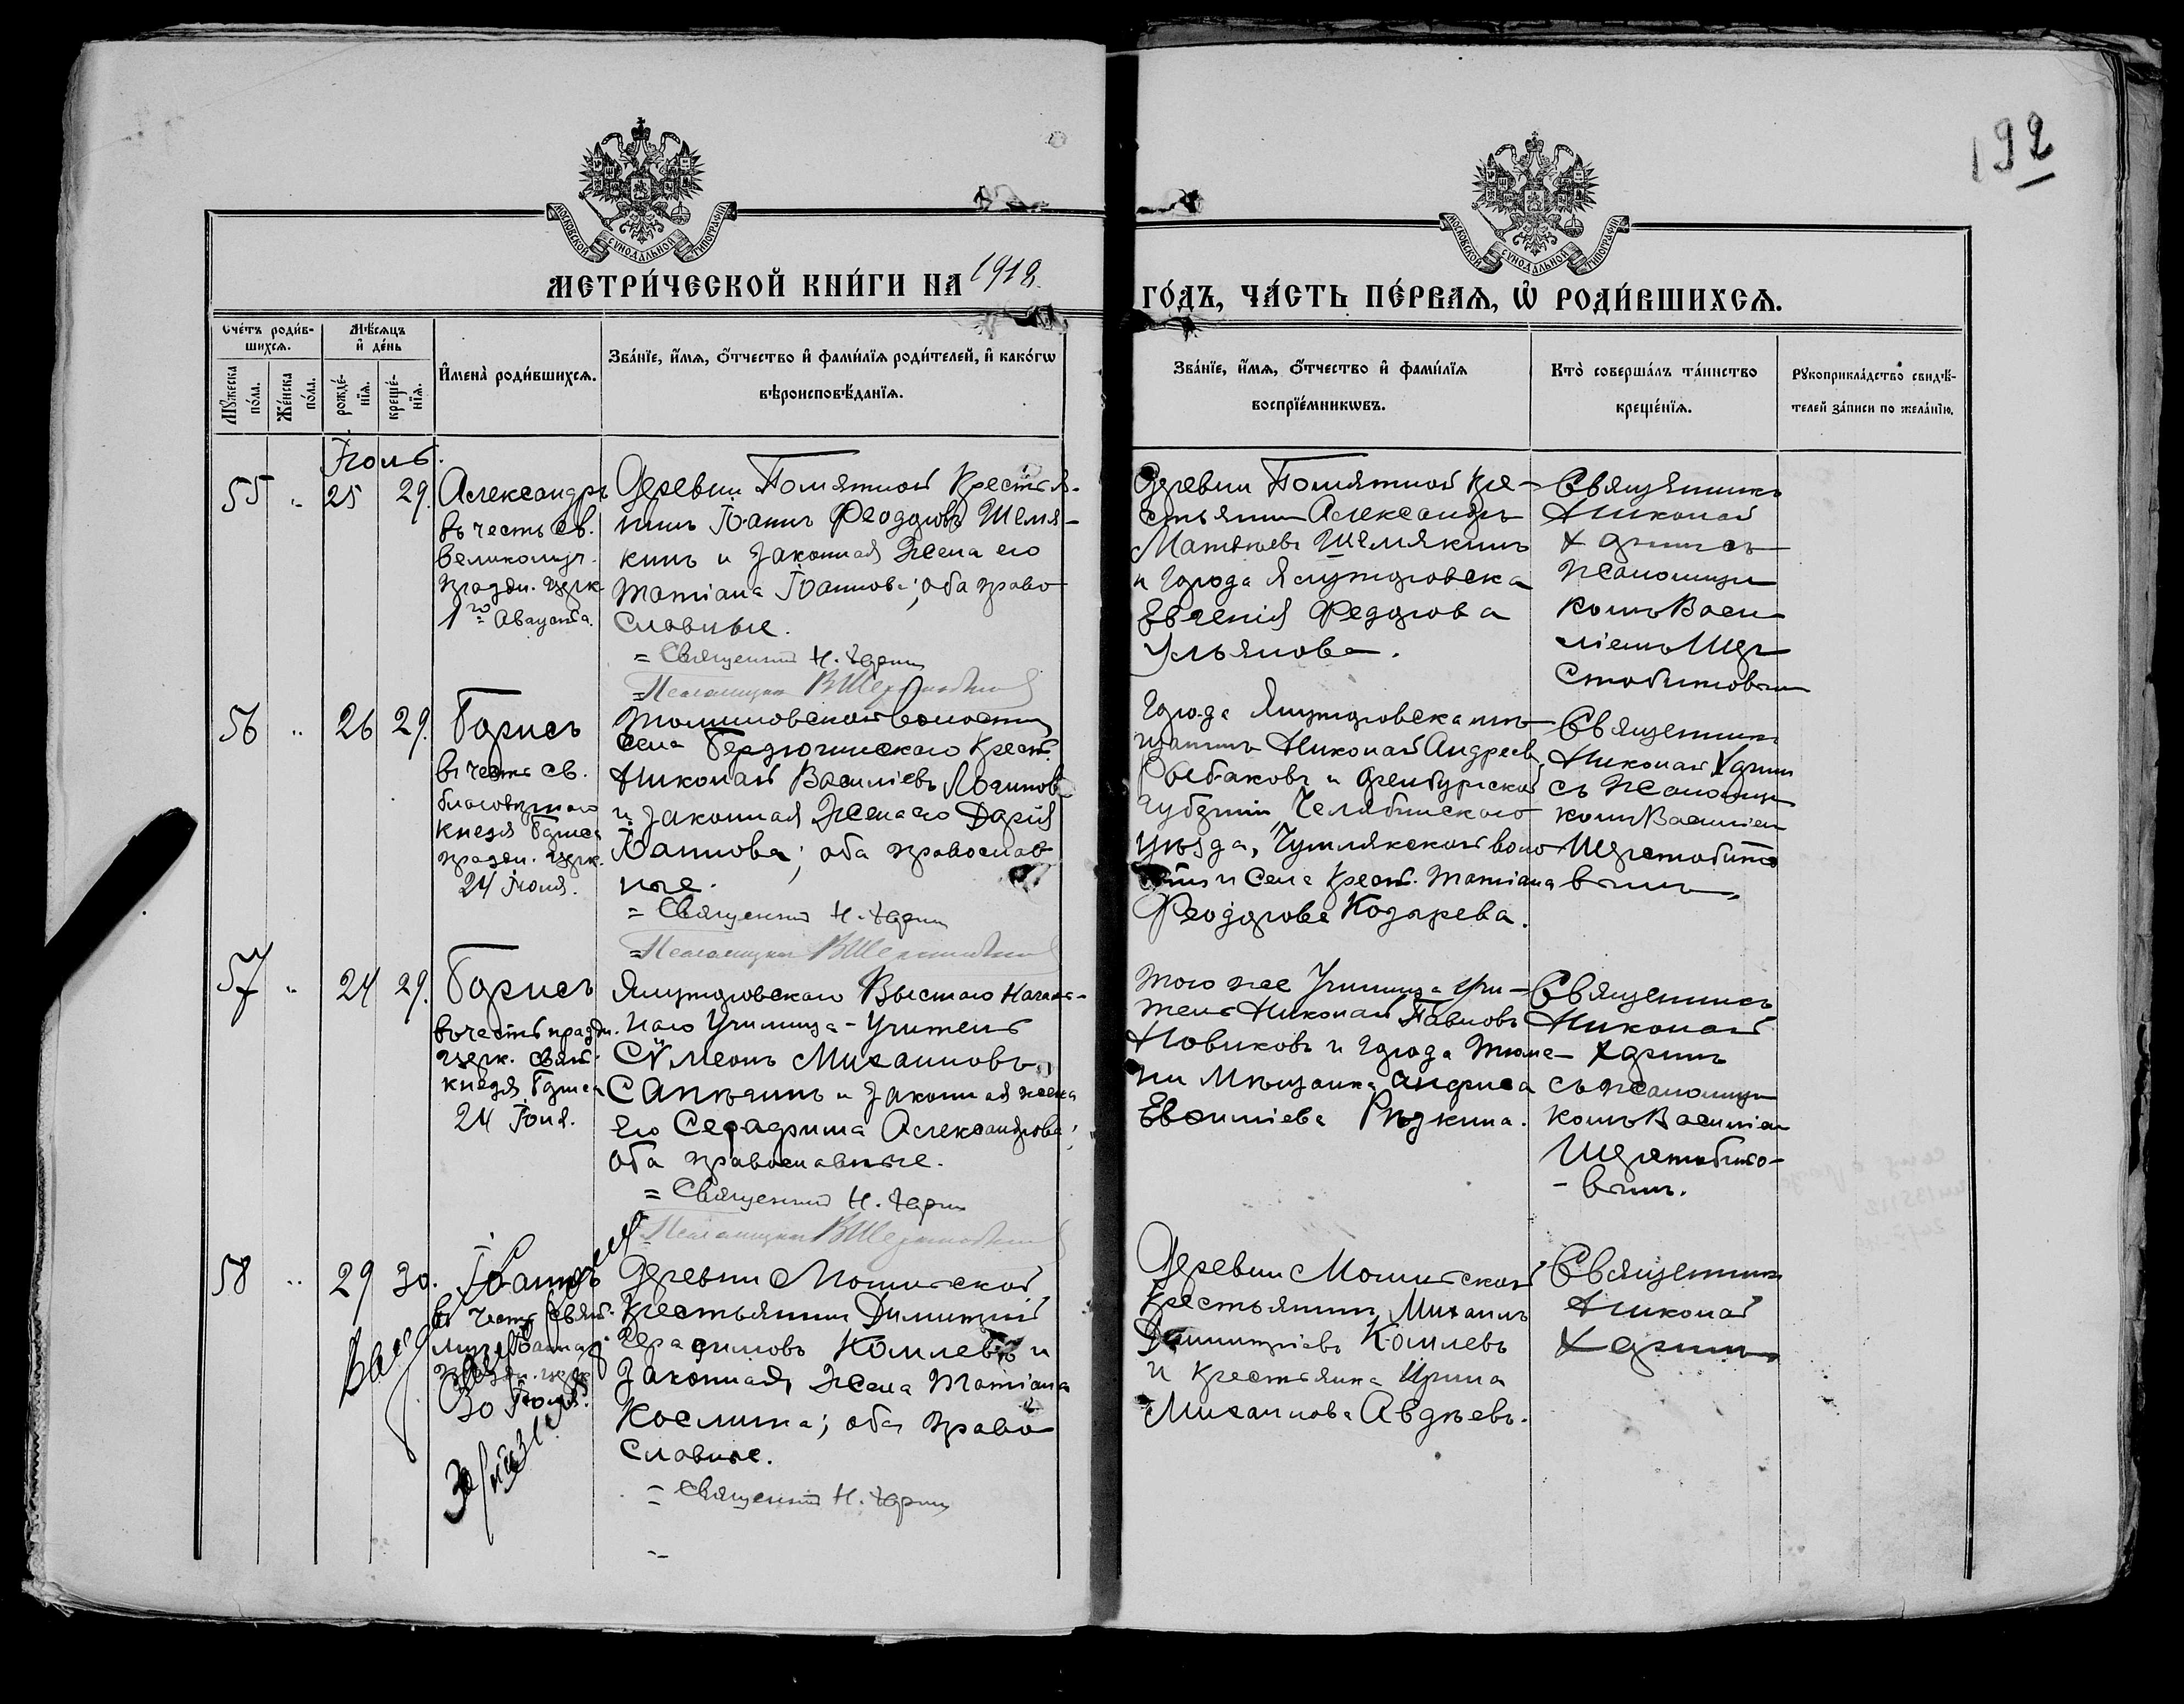 192
МОСКОВСКОЙ СѴНОДАЛЬНОЙ ТИПОГРАФІИ
МОСКОВСКОЙ СѴНОДАЛЬНОЙ ТИПОГРАФІИ
МЕТРИ́ЧЕСКОЙ КНИ́ГИ НА 1918.
ГО́ДЪ, ЧА́СТЬ ПЕ́РВАѦ, Ѽ РОДИ́ВШИХСѦ.
Сче́тъ роди́в-
шихсѧ.
Мꙋ́жеска
по́ла.
Же́нска
по́ла.
Мѣ́сѧцъ
и҆ де́нь
рожде́-
нїѧ.
креще́-
нїѧ.
И҆мена̀ роди́вшихсѧ.
Зва́нїе, и҆́мѧ, ѻ҆́тчество и҆ фами́лїѧ роди́телей, и҆ како́гѡ
вѣроисповѣ́данїѧ.
Зва́нїе, и҆́мѧ, ѻ҆́тчество и҆ фами́лїѧ
воспрїе́мникѡвъ.
Кто̀ соверша́лъ та́инство
креще́нїѧ.
Рꙋкоприкла́дство свидѣ́-
телей за́писи по жела́нїю.
Іюль.
55 " 25 29.
Александръ
въ честь св.
великомуч.
праздн. церк.
1го Августа.
Деревни Помятной Крестья-
нинъ Іоаннъ Феодоровъ Шемя-
кинъ и законная жена его
Татіана Іоаннова; оба право
славные.
= Священникъ Н. Харин
= Псаломщикъ В Шерстобитовъ
Деревни Помятной кре-
стьянинъ Александръ
Матѳѣевъ Шемякинъ
и города Ялуторовска
Евгенія Федорова
Ульянова.
Священникъ
Николай
Харинъ съ
псаломщи
комъ Васи
ліемъ Шер
стобитовым
56 " 26 29.
Борисъ
въ честь св.
благовѣрнаго
князя Бориса
праздн. церк.
24 Іюля.
Томиловской волости
села Бердюгинскаго крест.
Николай Василіевъ Логиновъ
и законная жена его Дарія
Іоаннова; оба православ
ные.
= Священникъ Н. Харин
= Псаломщикъ В Шерстобитовъ
Города Ялуторовска мѣ-
щанинъ Николай Андреев.
Рыбаковъ и Оренбургской
губерніи Челябинскаго
уѣзда, Чумлякской воло
сти и села крест. Татіана
Феодорова Козырева.
Священник
Николай Харин
съ псаломщи
комъ Василіем
Шерстобито
вымъ
57 " 24 29.
Борисъ
въ честь праздн.
церк. свят.
князя Бориса
24 Іюля.
Ялуторовскаго Высшаго Началь-
наго Училища - Учитель
Сѵмеонъ Михаиловъ
Сапѣгинъ и законная жена
его Серафима Александрова;
оба православные.
= Священникъ Н. Харин
= Псаломщикъ В Шерстобитовъ
Того же Училища Учи-
тель Николай Павловъ
Новиковъ и города Тюме-
ни Мѣщанка Анфиса
Евфиміева Рѣзкина.
Священникъ
Николай
Харинъ
съ псаломщи
комъ Василіем
Шерстобито-
- вымъ.
58 " 29 30.
Іоаннъ
въ честь свят.
муч. Іоанна
праздн. церк.
30 Іюля.
Деревни Мотинской
Крестьянинъ Димитрій
Герасимовъ Комлевъ и
законная жена Татіана
Космина; оба право
славные.
= Священникъ Н. Харин
Деревни Мотинской
Крестьянинъ Михаилъ
Димитріевъ Комлевъ
и крестьянка Ирина
Михаилова Авдѣевъ.
Священник
Николай
Харинъ